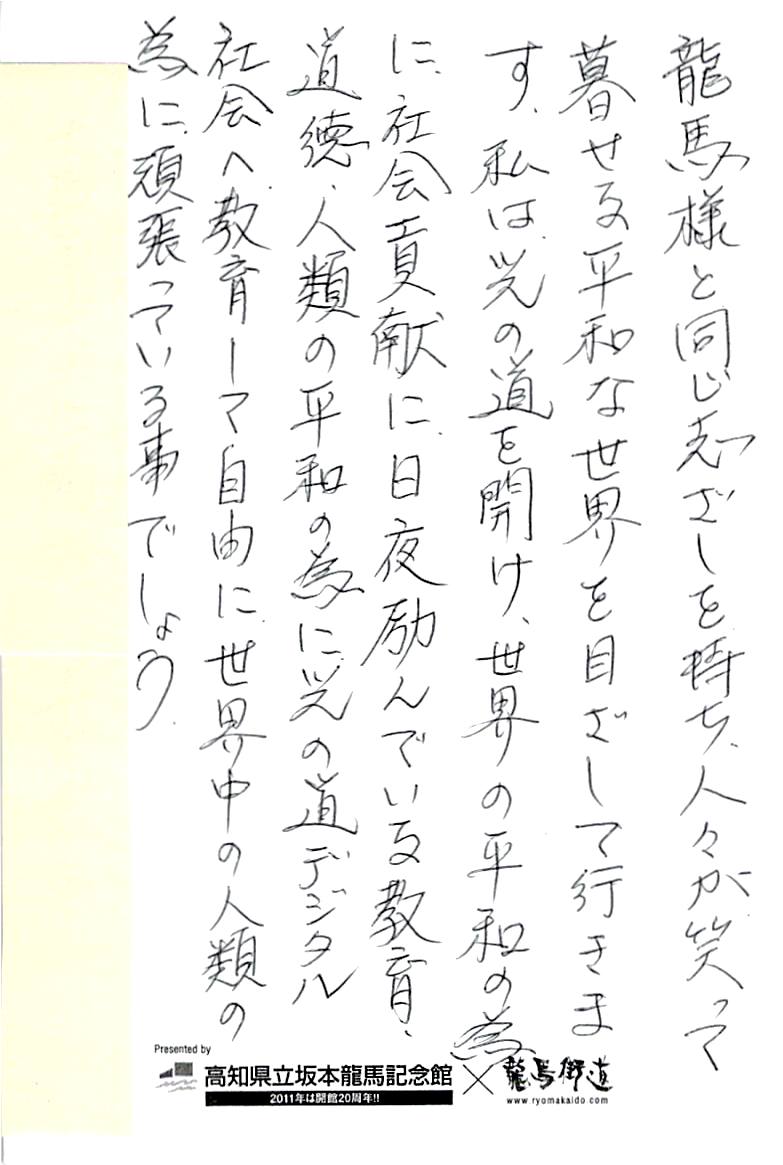 龍馬様と同じ志ざしを持ち、人々が笑って
暮せる平和な世界を目ざして行きま
す、私は、光の道を開け、世界の平和の為
に、社会貢献に、日夜励んでいる教育、
道徳、人類の平和の為に光の道デジタル
社会へ教育して自由に世界中の人類の
為に、頑張っている事でしょう、
Presented by
高知県立坂本龍馬記念館×龍馬街道
2011年は開館20周年!!
www.ryomakaido.com